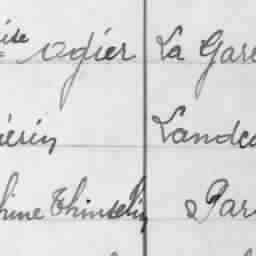 ise Ogier La Gare
érin Landea
hine Thinselin Par